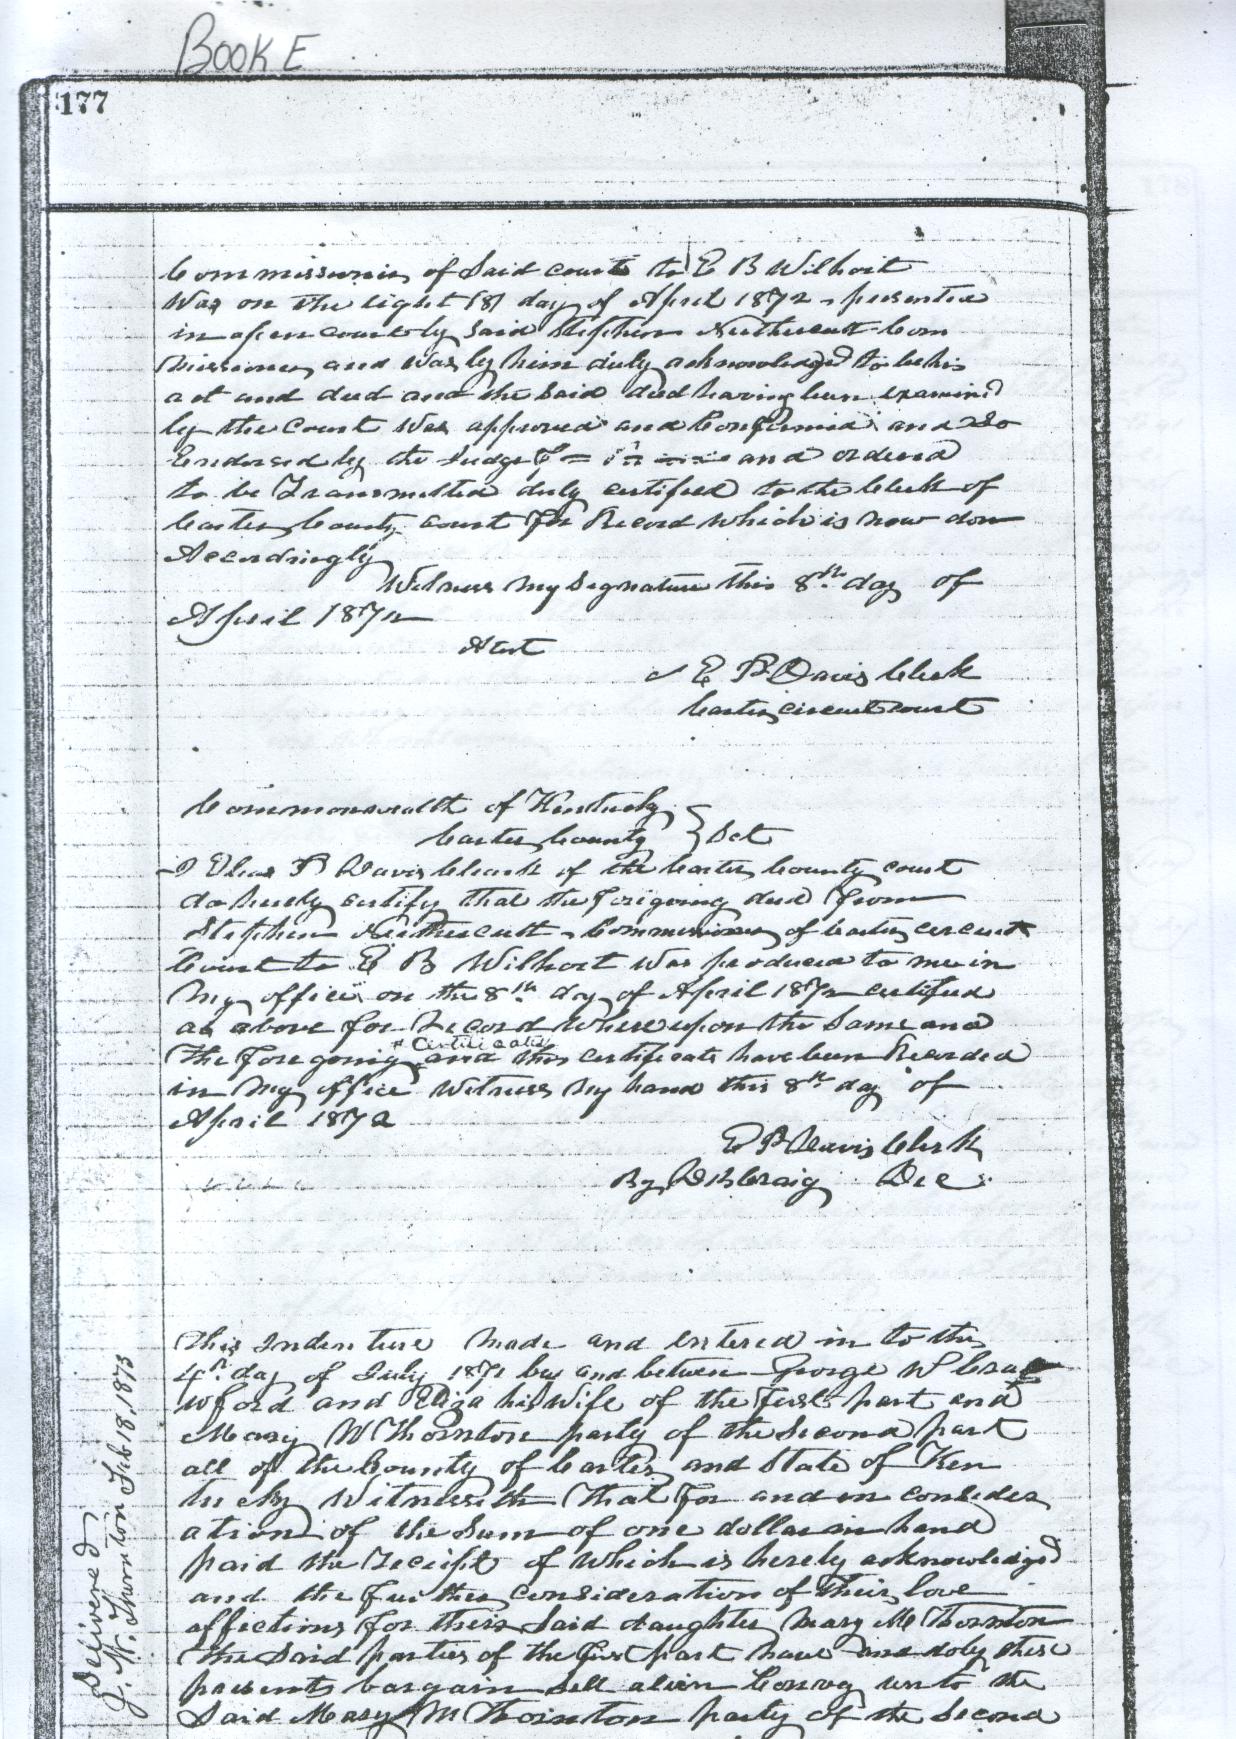 BOOK E
177
Commissioner of Said court to E B Wilhoit
Was on the eight (8) day of April 1872 presented
in open court by said Stephen Nethercutt Com
missioner and was by him duly acknowledged to be his
act and deed and the said deed having been examined
by the Court was approved and Confirmed and So
Endorsed by the Judge and ordered
to be Transmitted duly certified to the Clerk of
Carter County court for Record which is now don
Accordingly
Witness my Signature this 8th day of
April 1872
Atest
E B Davis Clerk
Carter circuit court
Commonwealth of Kentucky
Carter County } Sct
I Elias B Davis Cleark of the Carter County court
do hereby certify that the Foregoing deed From
Stephen Nethercutt Commissioner of Carter circuit
Court to E B Wilhoit was produced to me in
my office on the 8th day of April 1872 certified
as above for Record Whereupon the Same and
+ Certificates
The Foregoing and this certificate have been Recorded
in my office Witness my hand this 8th day of
April 1872
E B Davis Clerk
By Craig D C
This Indenture made and entered in to this
4th day of July 1871 by and between George W Cra
wford and Eliza his Wife of the First part and
Mary M Thornton party of the Second part
all of the County of Carter and State of Ken
tucky Witnesseth That For and in consider
ation of the Sum of one dollar in hand
paid the Receipt of which is hereby acknowledged
and the Further consideration of their love
affections for their Said daughter Mary M Thornton
The Said parties of the First part have and do by these
presents bargain sell alien Convey unto the
Said Mary M Thornton party of the Second
Delivered
J. W. Thornton Feb 18, 1873